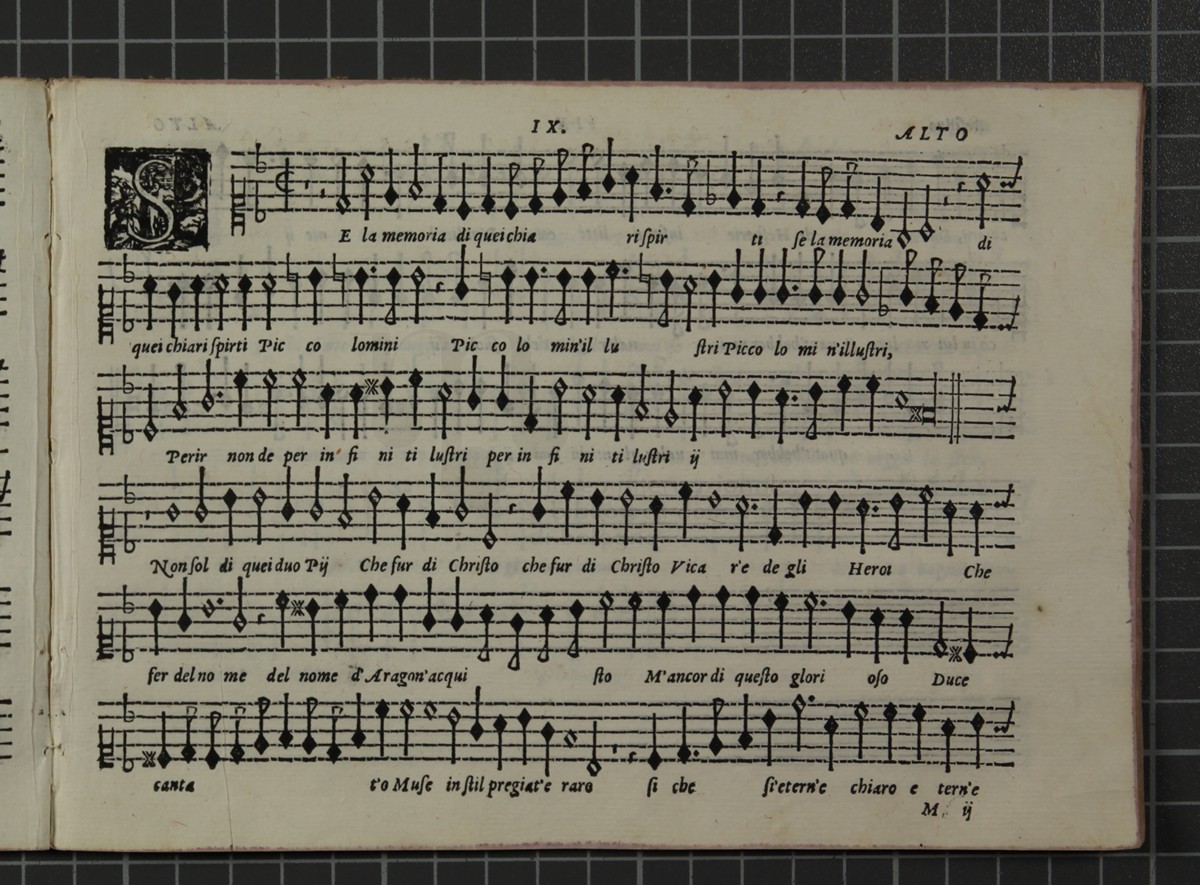 IX.
ALTO
SE la memoria di quei chia ri spir ti se la memoria di
quei chiari spirti Pic co lomini Pic co lo min'il lu stri Picco lo mi n'illustri,
Perir non de per in fi ni ti lustri per in fi ni ti lustri ij
Non sol di quei duo Pij Che fur di Christo che fur di Christo Vica r'e de gli Heroi Che
fer del no me del nome d'Aragon'acqui sto M'ancor di questo glori oso Duce
canta t'o Muse in stil pregiat'e raro si che si'etern'e chiaro e tern'e
M ij